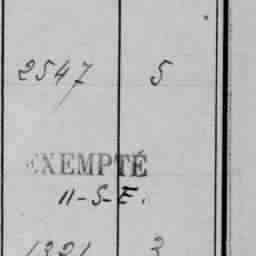 2547 5
EXEMPTÉ
11-S-E.
1321 3